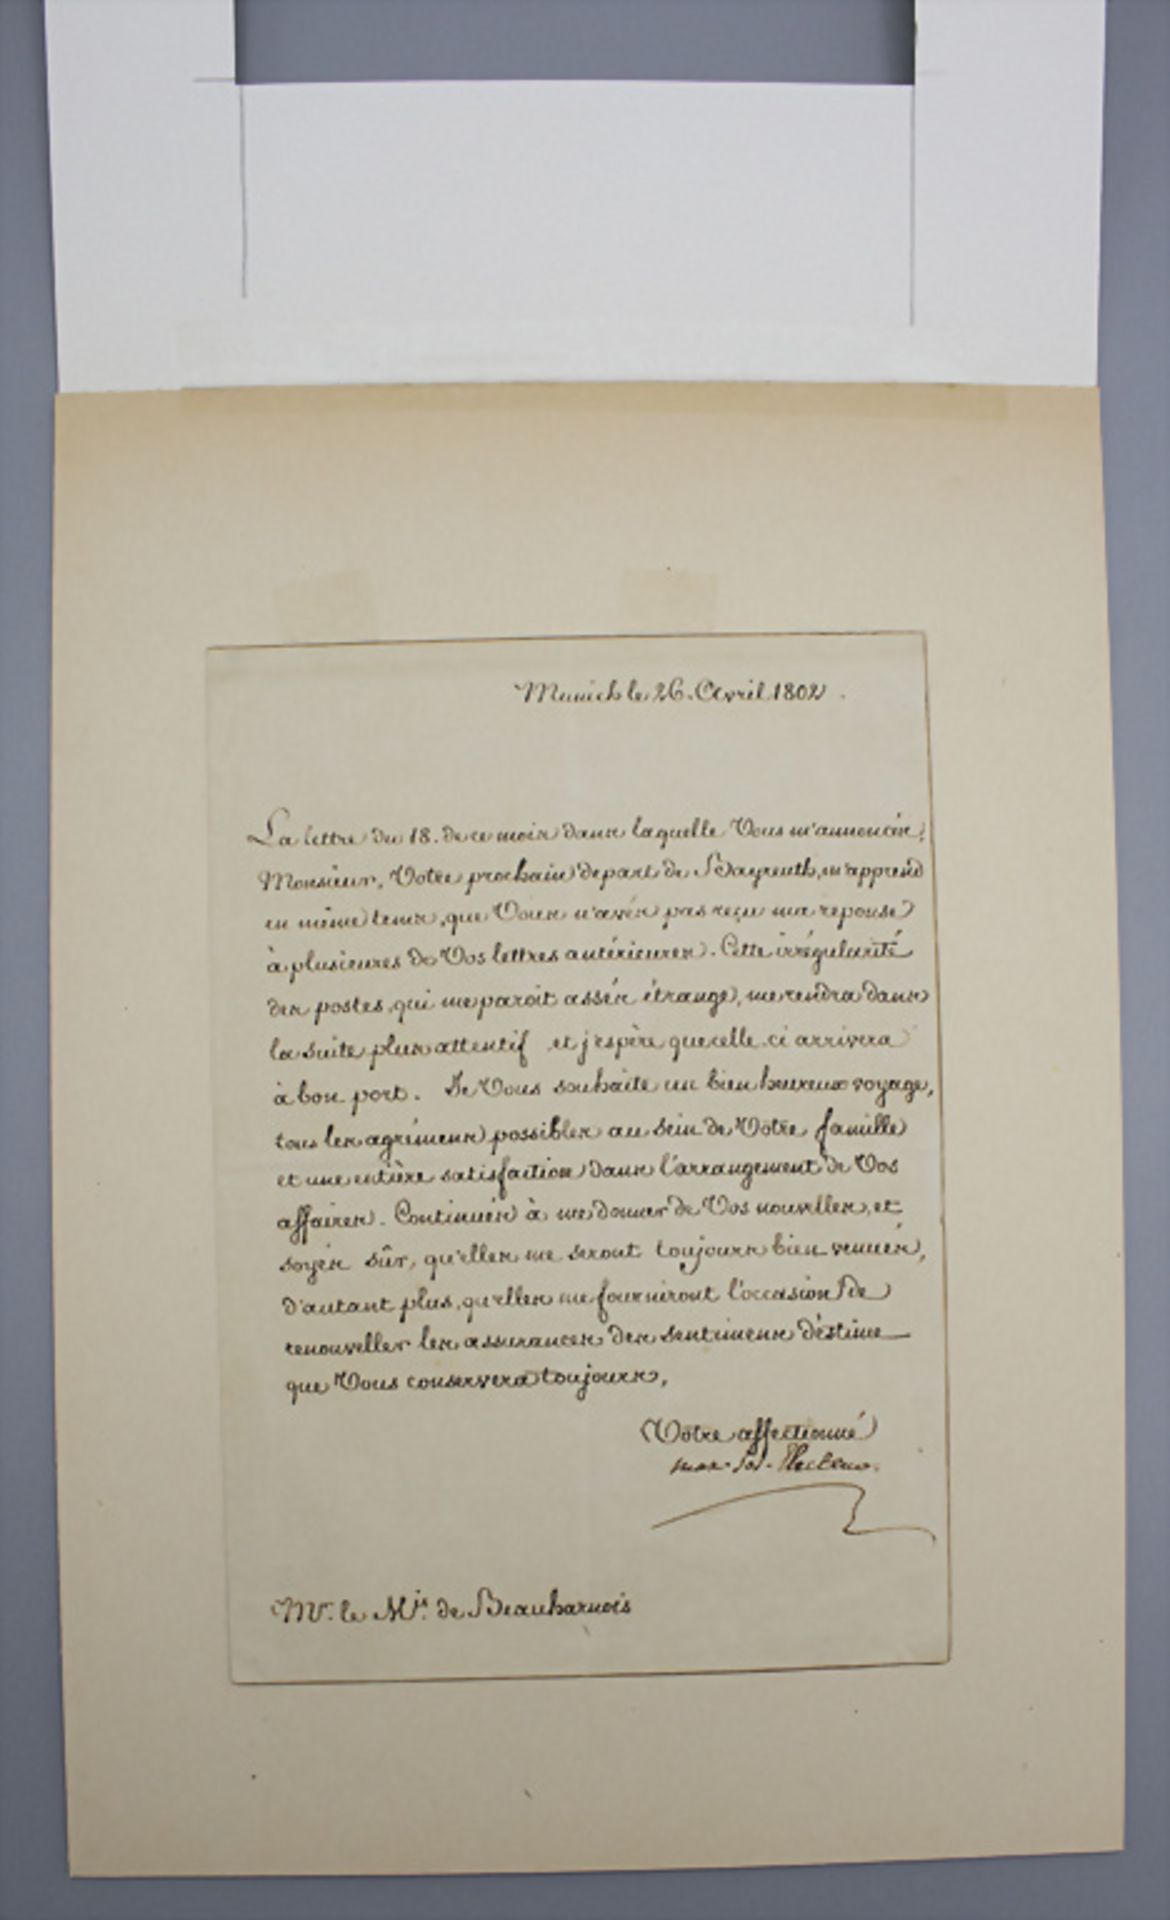 Munich le 26. Avril 1802.
La lettre du 18. de ce mois dans laquelle Vous m'annoncés,
Monsieur, Votre prochain départ de Bayreuth, m'apprend
en même tems, que Vous n'avés pas reçu ma reponse
à plusieures de Vos lettres antérieures. Cette irrégularité
des postes, qui me paroit assés étrange, me rendra dans
la suite plus attentif et j'espère que celle ci arrivera
à bon port. Je Vous souhaite un bien heureux voyage,
tous les agrémens possibles au sein de Vôtre famille
et une entière satisfaction dans l'arrangement de Vos
affaires. Continués à me donner de Vos nouvelles, et
soyés sûr, qu'elles me seront toujours bien venues,
d'autant plus, qu'elles me fourniront l'occasion de
renouveller les assurances des sentimens d'éstime
que Vous conservera toujours,
Vôtre affectionné
max. Jos. Electeur.
Mr. le Mis. de Beauharnois